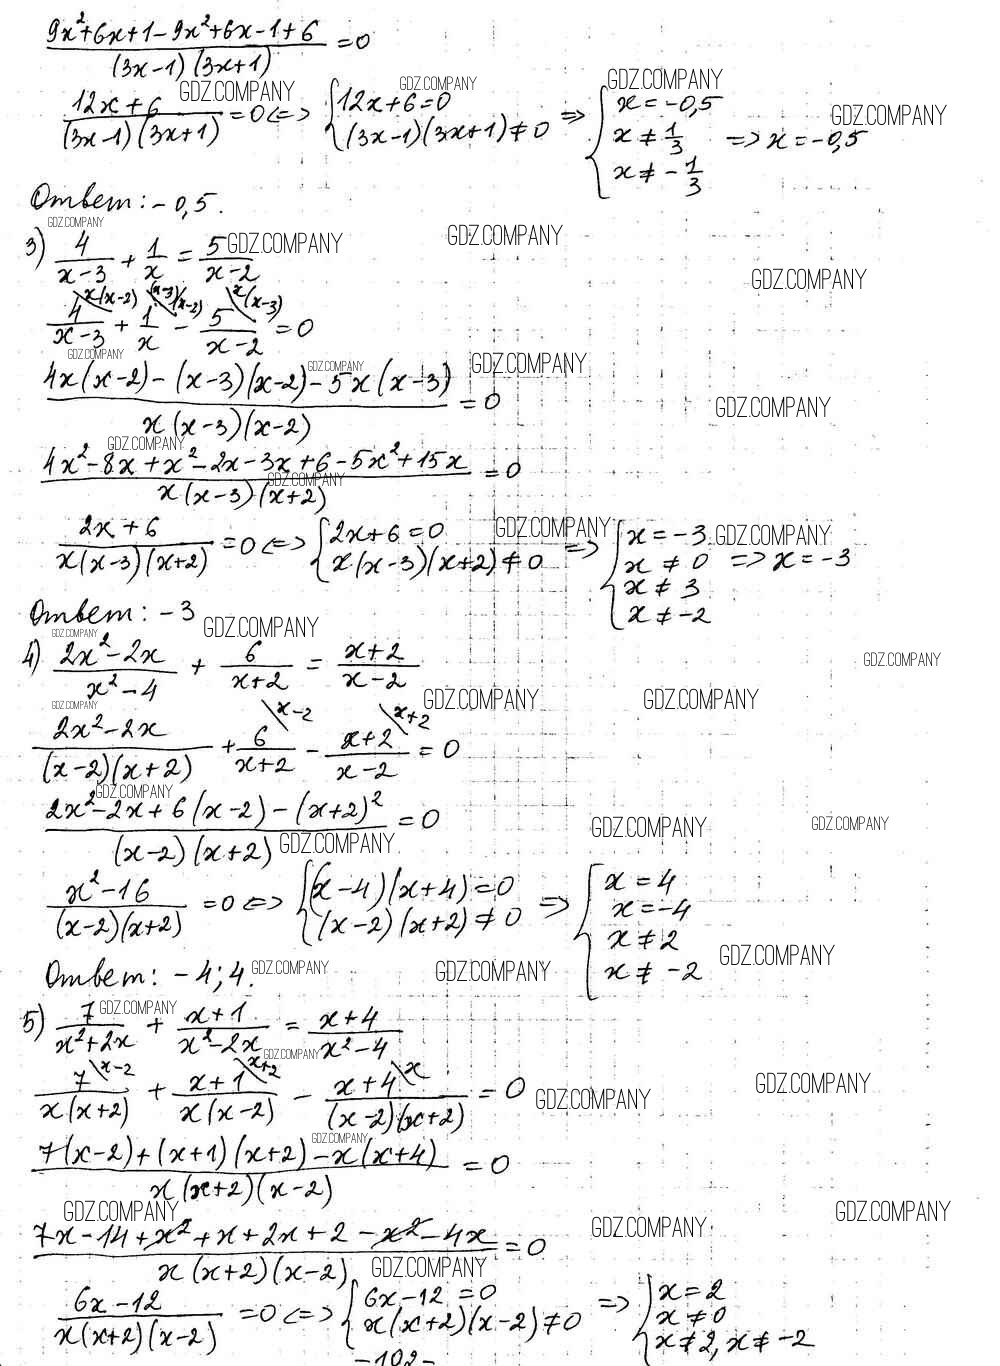 (9x²+6x+1-9x²+6x-1+6)/((3x-1)(3x+1)) =0
(12x+6)/((3x-1)(3x+1)) =0 <=> {12x+6=0; (3x-1)(3x+1)≠0 => {x=-0,5; x≠1/3; x≠-1/3 => x=-0,5
GDZ.COMPANY GDZ.COMPANY GDZ.COMPANY GDZ.COMPANY
Ответ: -0,5.
GDZ.COMPANY
3) 4/(x-3) + 1/x = 5/(x-2)
GDZ.COMPANY GDZ.COMPANY GDZ.COMPANY
4/(x-3) \x(x-2) + 1/x \(x-3)(x-2) - 5/(x-2) \x(x-3) =0
GDZ.COMPANY GDZ.COMPANY GDZ.COMPANY
(4x(x-2)-(x-3)(x-2)-5x(x-3))/(x(x-3)(x-2)) =0
GDZ.COMPANY
GDZ.COMPANY
(4x²-8x+x²-2x-3x+6-5x²+15x)/(x(x-3)(x+2)) =0
GDZ.COMPANY
(2x+6)/(x(x-3)(x+2)) =0 <=> {2x+6=0; x(x-3)(x+2)≠0 => {x=-3; x≠0; x≠3; x≠-2 => x=-3
GDZ.COMPANY GDZ.COMPANY
Ответ: -3
GDZ.COMPANY GDZ.COMPANY
4) (2x²-2x)/(x²-4) + 6/(x+2) = (x+2)/(x-2)
GDZ.COMPANY
GDZ.COMPANY GDZ.COMPANY GDZ.COMPANY
(2x²-2x)/((x-2)(x+2)) + 6/(x+2) \x-2 - (x+2)/(x-2) \x+2 =0
GDZ.COMPANY
(2x²-2x+6(x-2)-(x+2)²)/((x-2)(x+2)) =0
GDZ.COMPANY GDZ.COMPANY GDZ.COMPANY
(x²-16)/((x-2)(x+2)) =0 <=> {(x-4)(x+4)=0; (x-2)(x+2)≠0 => {x=4; x=-4; x≠2; x≠-2
GDZ.COMPANY
Ответ: -4; 4.
GDZ.COMPANY GDZ.COMPANY
5) 7/(x²+2x) + (x+1)/(x²-2x) = (x+4)/(x²-4)
GDZ.COMPANY GDZ.COMPANY
7/(x(x+2)) \x-2 + (x+1)/(x(x-2)) \x+2 - (x+4)/((x-2)(x+2)) \x =0
GDZ.COMPANY GDZ.COMPANY
GDZ.COMPANY
(7(x-2)+(x+1)(x+2)-x(x+4))/(x(x+2)(x-2)) =0
GDZ.COMPANY GDZ.COMPANY GDZ.COMPANY
(7x-14+x²+x+2x+2-x²-4x)/(x(x+2)(x-2)) =0
GDZ.COMPANY
(6x-12)/(x(x+2)(x-2)) =0 <=> {6x-12=0; x(x+2)(x-2)≠0 => {x=2; x≠0; x≠2, x≠-2
-102-